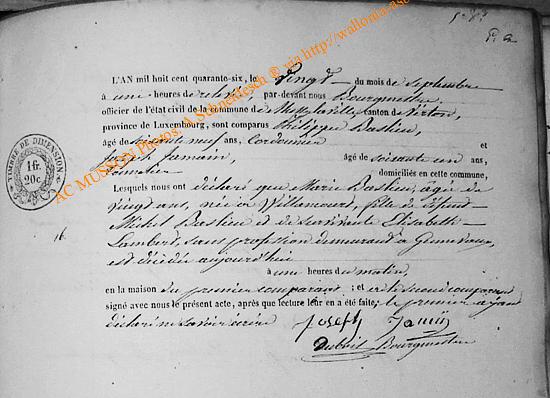 P. 2
L'AN mil huit cent quarante-six, le vingt du mois de Septembre
à une heures de relevée, par-devant nous Bourgmestre
officier de l'état civil de la commune de canton de Virton,
province de Luxembourg, sont comparus Philippe Bastien,
âgé de soixante neuf ans, Cordonnier et
Joseph Jamin, âgé de soixante un ans,
domiciliés en cette commune,
Lesquels nous ont déclaré que Marie Bastien, âgée de
vingt ans, née à Villancourt, fille de défunt
Michel Bastien et de survivante Elisabeth
16. Lambert, sans profession demeurant à
est décédée aujourd'hui
à une heures du matin,
en la maison du premier comparant; et le second comparant
signé avec nous le présent acte, après que lecture leur en a été faite, le premier ayant
déclaré ne savoir écrire
Joseph Jamin
Bourgmestre
TIMBRE DE DIMENSION
1 fr.
20c
AC MUSSON Photos. A. Schnekfesch ® via http://wallonia.ase